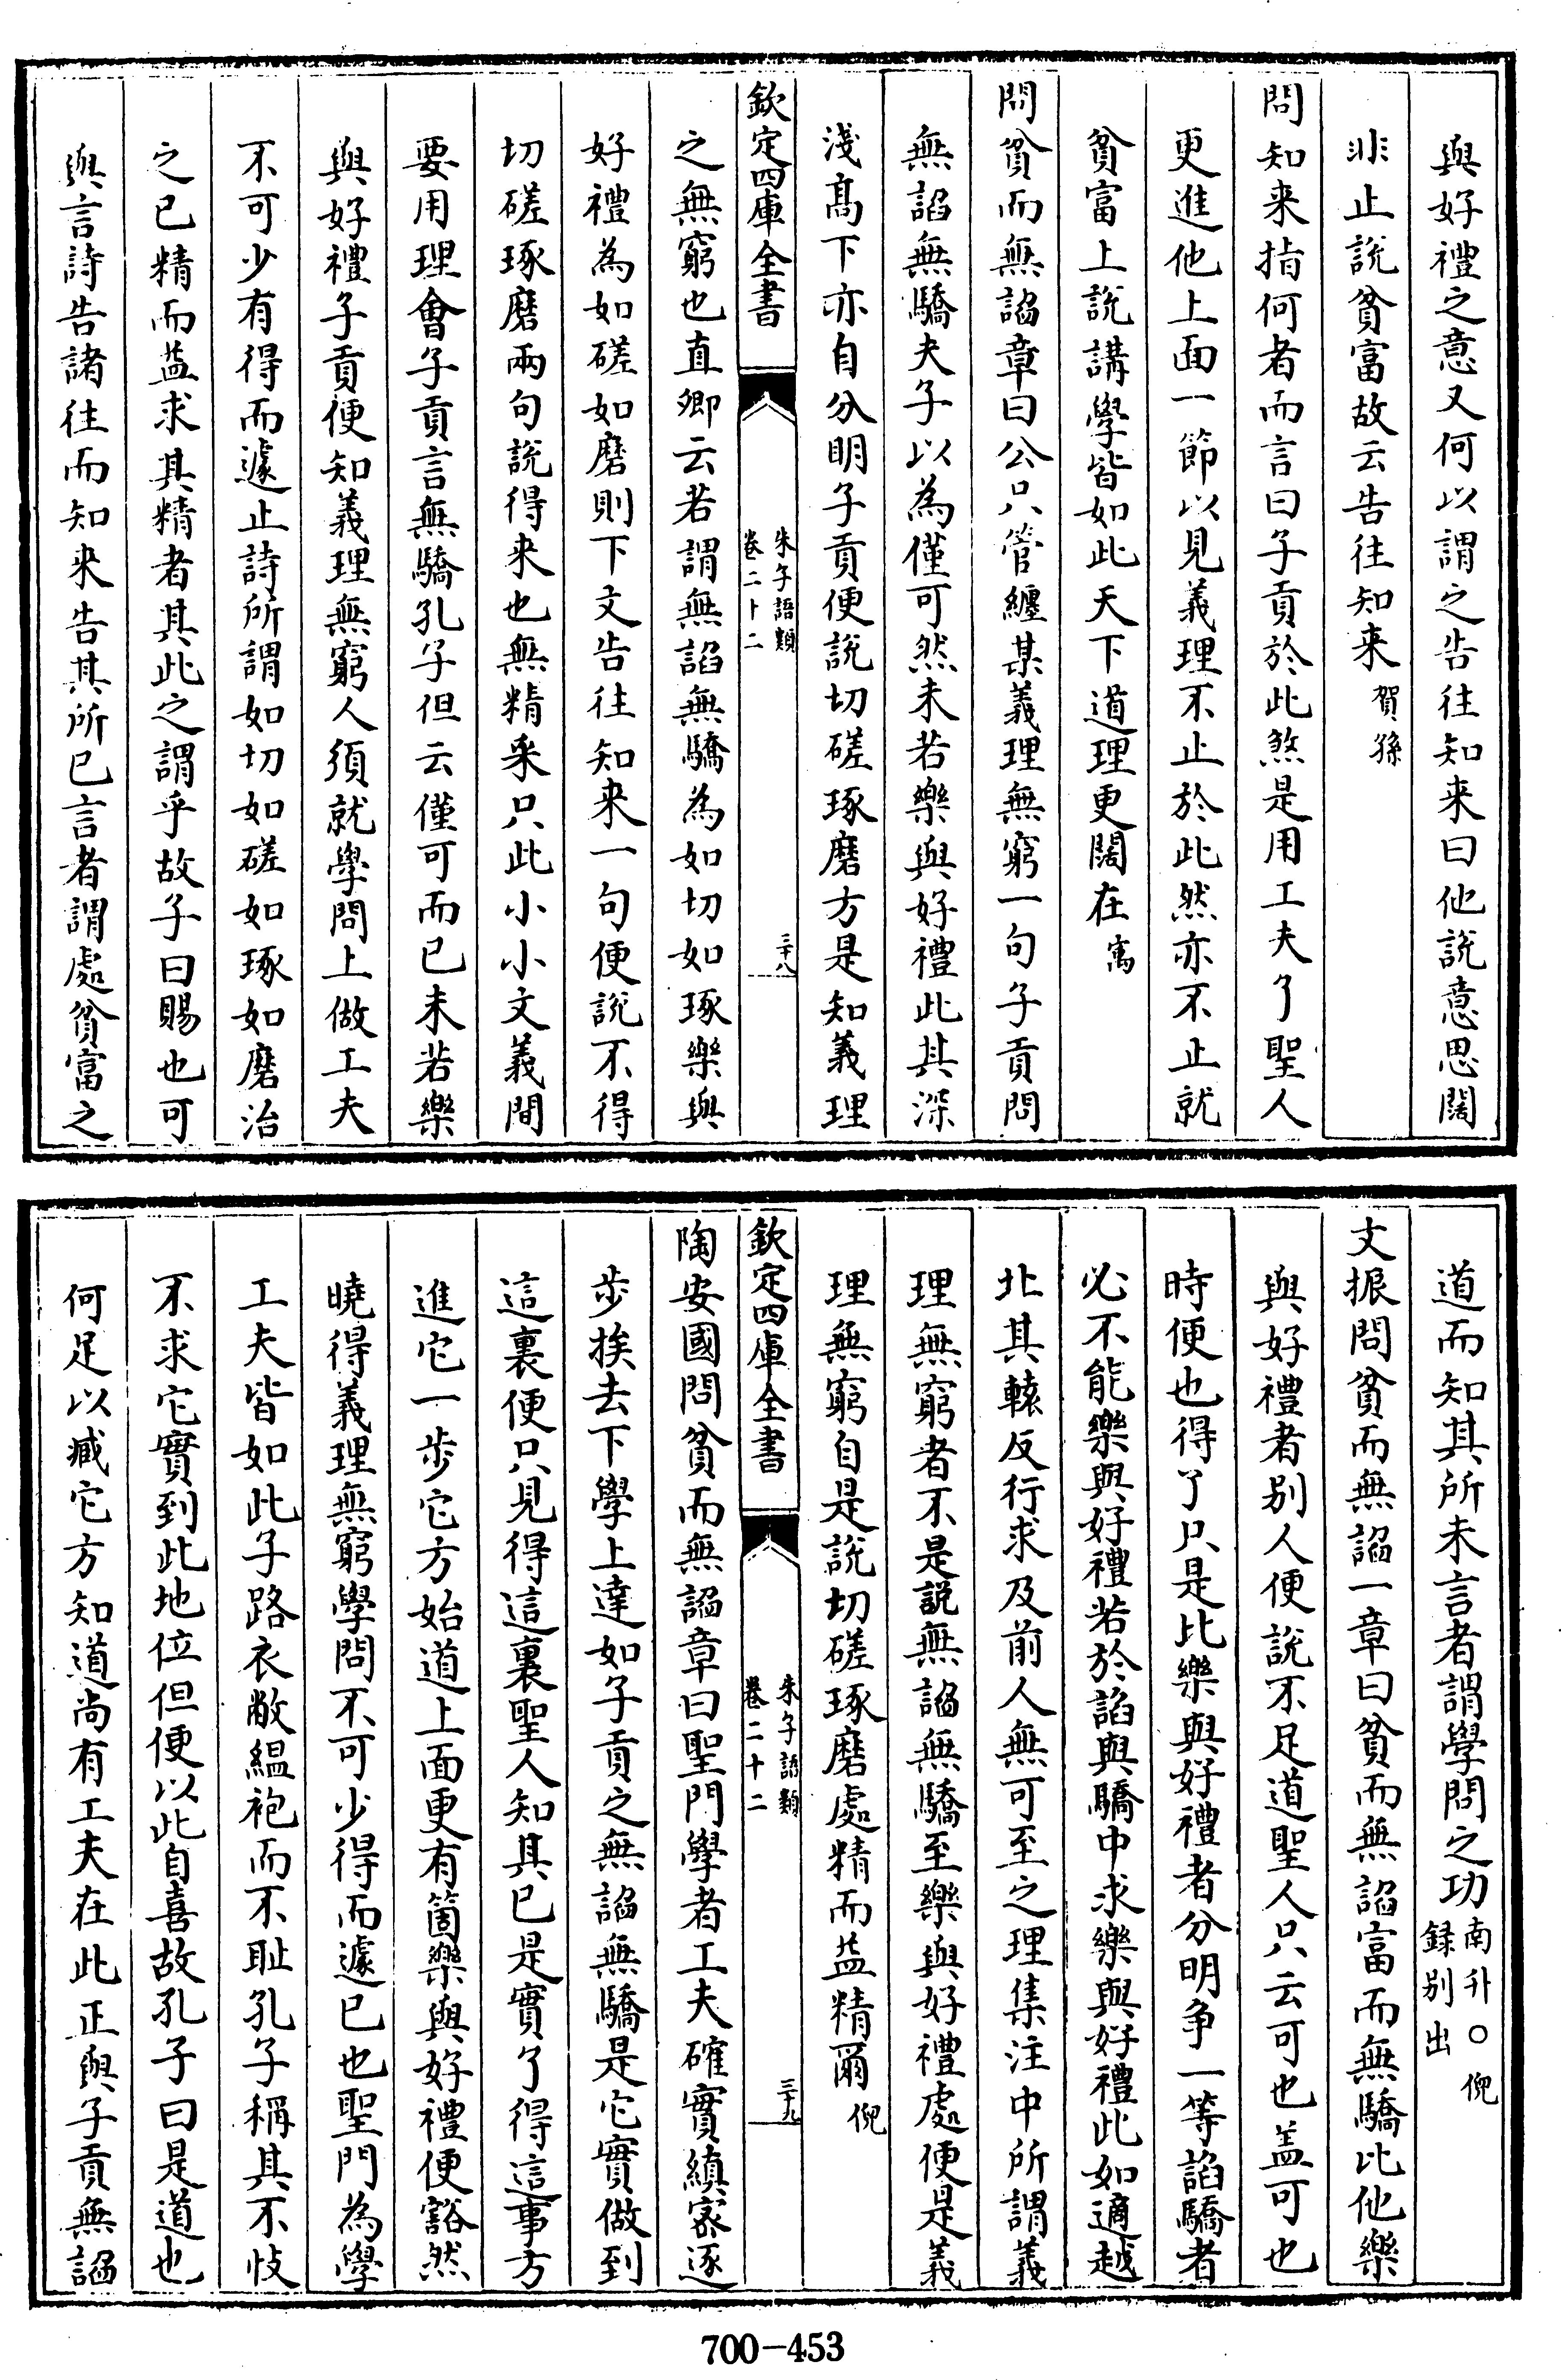 與好禮之意又何以謂之告往知来曰他說意思闊
非止說貧富故云告往知来賀孫
問知来指何者而言曰子貢於此煞是用工夫了聖人
更進他上面一節以見義理不止於此然亦不止就
貧富上說講學皆如此天下道理更闊在㝢
問貧而無諂章曰公只管纏某義理無窮一句子貢問
無諂無驕夫子以為僅可然未若樂與好禮此其深
淺髙下亦自分明子貢便說切磋琢磨方是知義理
欽定四庫全書
朱子語類
卷二十二
三十八
之無窮也直卿云若謂無諂無驕為如切如琢樂與
好禮為如磋如磨則下文告往知来一句便說不得
切磋琢磨兩句說得来也無精采只此小小文義間
要用理㑹子貢言無驕孔子但云僅可而已未若樂
與好禮子貢便知義理無窮人須就學問上做工夫
不可少有得而遽止詩所謂如切如磋如琢如磨治
之已精而益求其精者其此之謂乎故子曰賜也可
與言詩告諸往而知来告其所已言者謂處貧富之
道而知其所未言者謂學問之功南升○倪
録别出
文振問貧而無諂一章曰貧而無諂富而無驕比他樂
與好禮者别人便說不足道聖人只云可也盖可也
時便也得了只是比樂與好禮者分明争一等諂驕者
必不能樂與好禮若於諂與驕中求樂與好禮此如適越
北其轅反行求及前人無可至之理集注中所謂義
理無窮者不是説無諂無驕至樂與好禮處便是義
理無窮自是說切磋琢磨處精而益精爾倪
欽定四庫全書
朱子語類
卷二十二
三十九
陶安國問貧而無諂章曰聖門學者工夫確實縝宻逐
步挨去下學上達如子貢之無諂無驕是它實做到
這裏便只見得這裏聖人知其已是實了得這事方
進它一步它方始道上面更有箇樂與好禮便豁然
曉得義理無窮學問不可少得而遽已也聖門為學
工夫皆如此子路衣敝緼袍而不耻孔子稱其不忮
不求它實到此地位但便以此自喜故孔子曰是道也
何足以臧它方知道尚有工夫在此正與子貢無諂
700-453